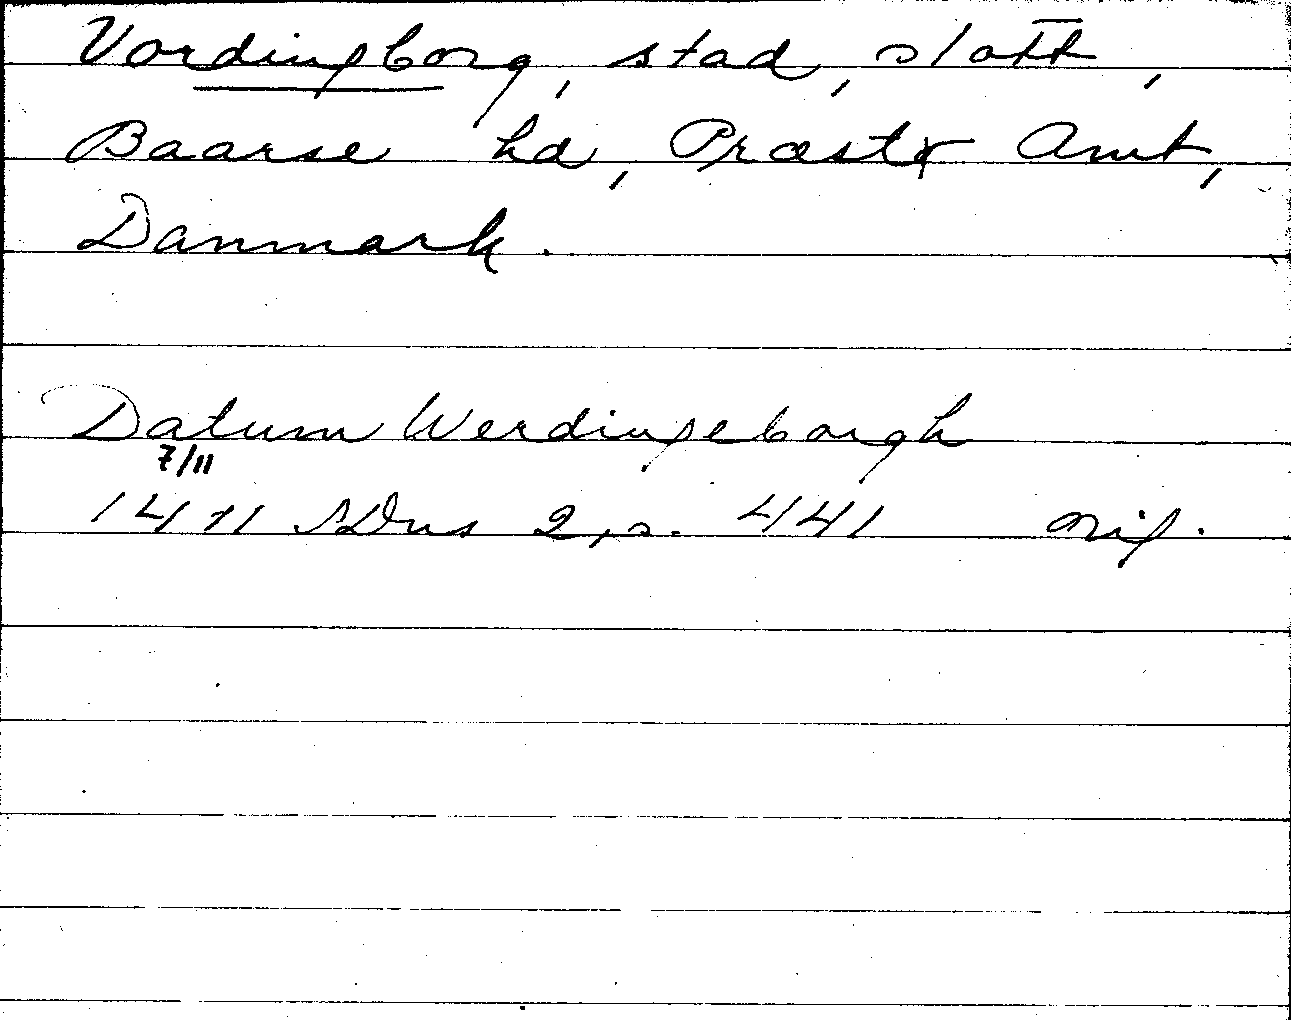 Vordingborg, stad, slott,
Baarse hd, Præstø Amt,
Danmark.
Datum Werdingeborgh
7/11
1411 SDns 2, s. 441 sig.